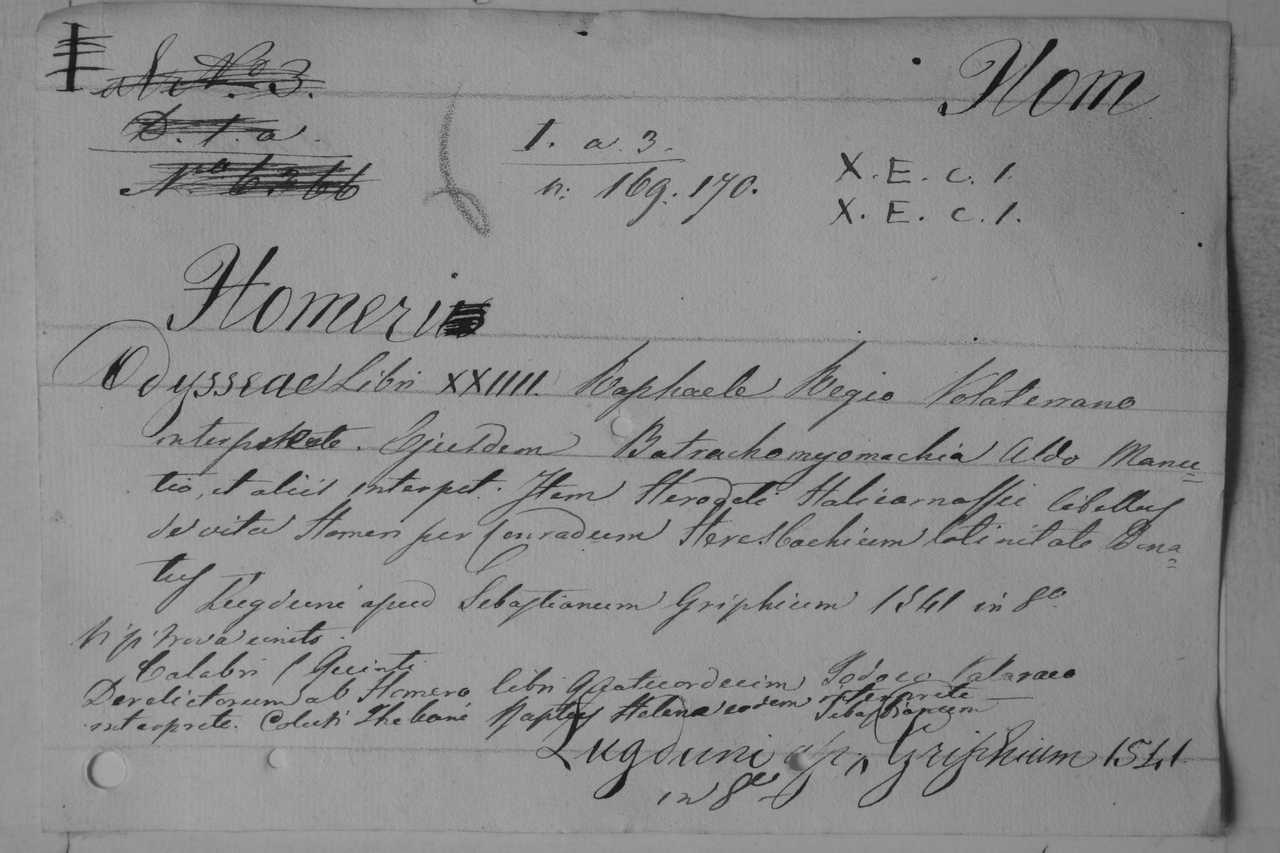 Nº 3.
Hom
D. 1. a.
1. a. 3.
X. E. c. 1.
Nº 6366
n: 169. 170.
X. E. c. 1.
Homeri
Odysseae Libri XXIIII. Raphaele Regio Volaterrano
interprete. Ejusdem Batrachomyomachia Aldo Manu=
tio, et aliis interpet. Item Herodoti Halicarnassei libellus
de vita Homeri per Conradum Heresbachium latinitate Dona=
tus
Lugduni apud Sebastianum Griphium 1541 in 8º
Vi si trova unito.
Calabri (Quinti
Derelictorum ab Homero libri Quatuordecim Jodoco Valaraeo
interprete. Coluti Thebani Raptus Helenae eodem interprete
Sebastianum
Lugduni ap. ^ Griphium 1541
in 8º